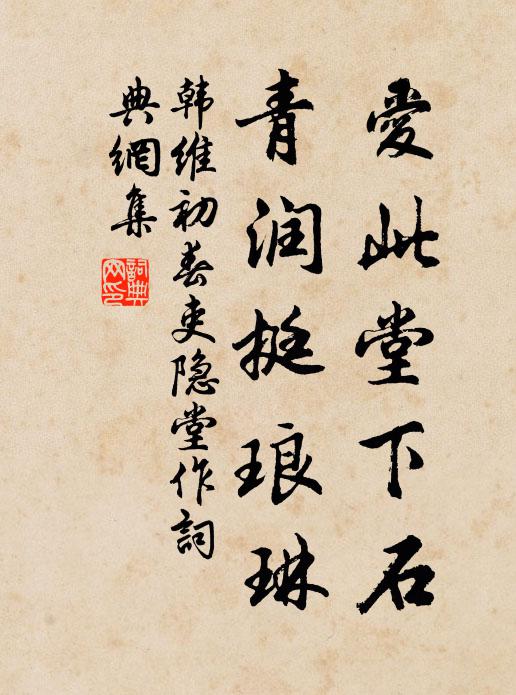 愛此堂下石
青润挺琅琳
韩維初春吏隐堂作詞
典網集
詞典
网印